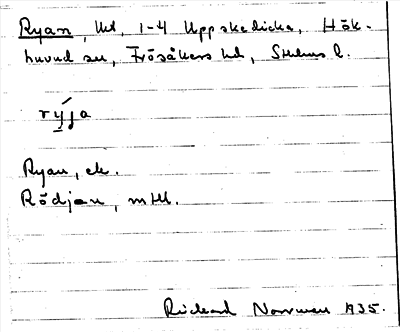 Ryan, hd, 1-4 Uppskedicka, Hök-
huvud sn, Frösåkers hd, Sthlms l.
rýja
Ryan, ek.
Rödjan, mtl.
Rickard Norrman 1935.